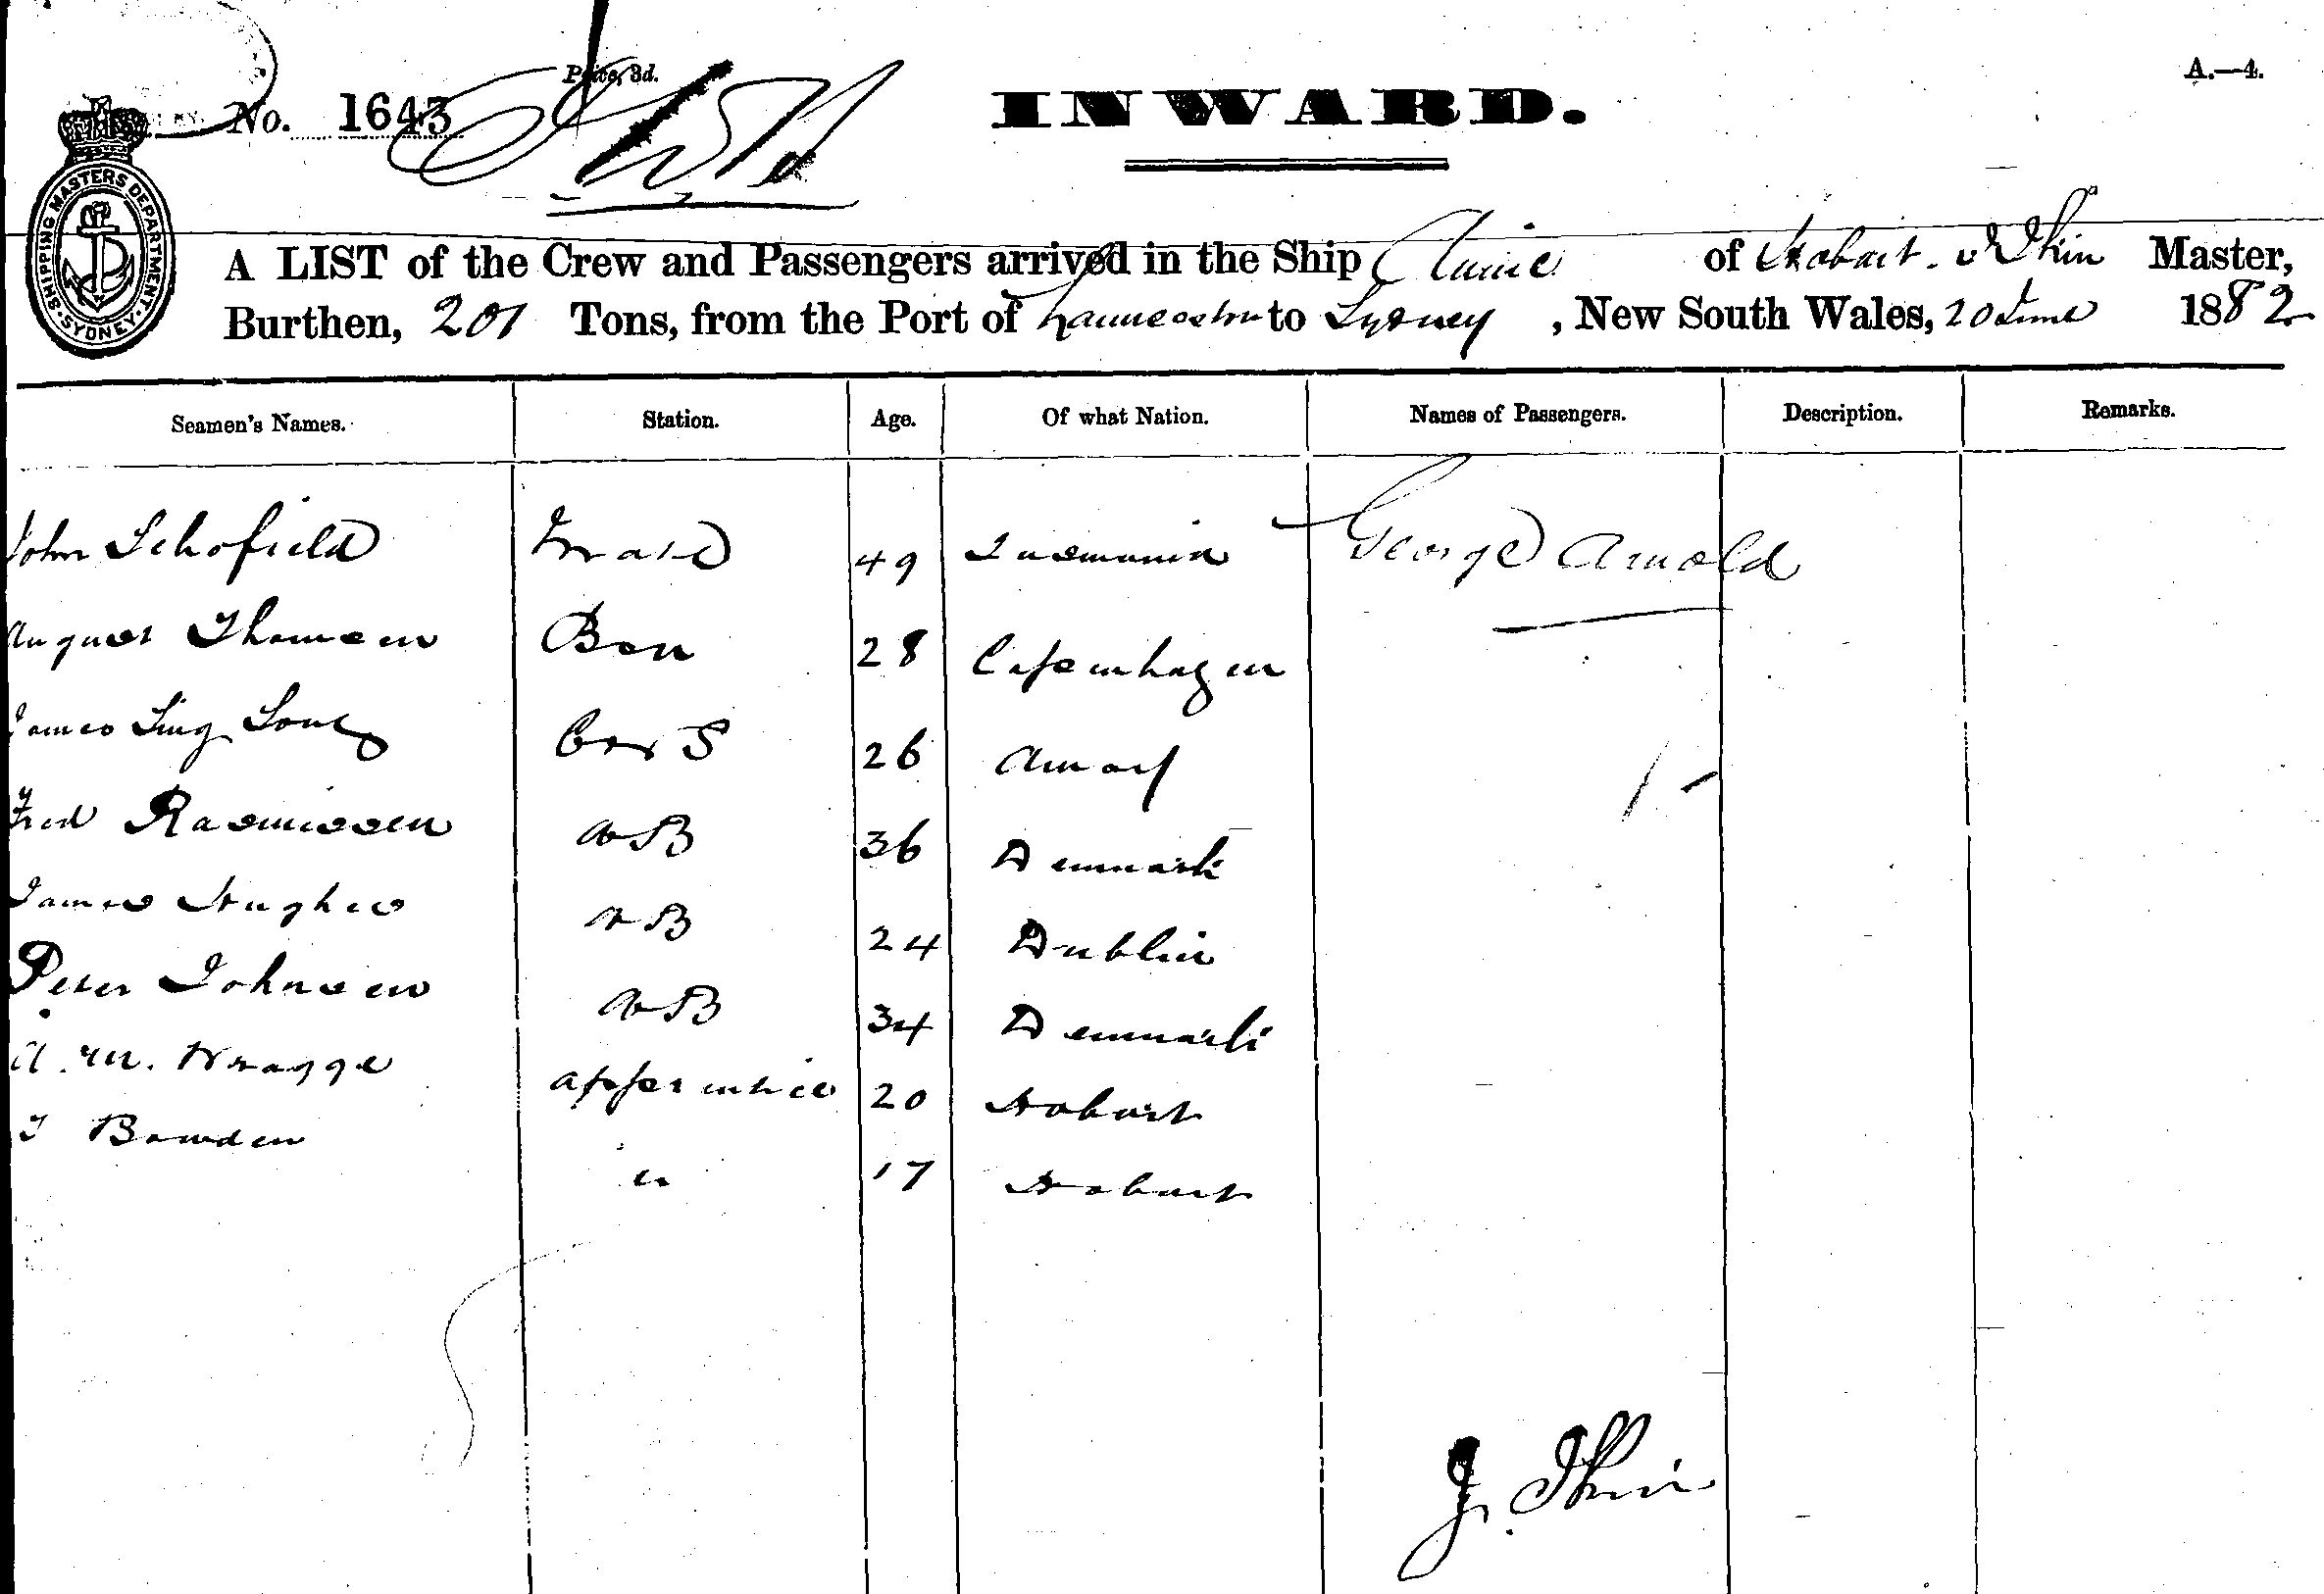 A.—4.
Price, 3d.
No. 1643
INWARD.
SHIPPING MASTERS DEPARTMENT SYDNEY
A LIST of the Crew and Passengers arrived in the Ship Annie of Hobart. J Ikin Master,
Burthen, 201 Tons, from the Port of Launceston to Sydney, New South Wales, 20 June 1882
Seamen's Names. Station. Age. Of what Nation. Names of Passengers. Description. Remarks.
John Schofield Mate 49 Tasmania George Arnold
August Thomsen Bsn 28 Copenhagen
James Sing Song C & S 26 Amoy
Fred Rasmussen AB 36 Denmark
James Hughes AB 24 Dublin
Peter Johnsen AB 34 Denmark
A. M. Wragge apprentice 20 Hobart
T Bowden " 17 Hobart
J. Ikin